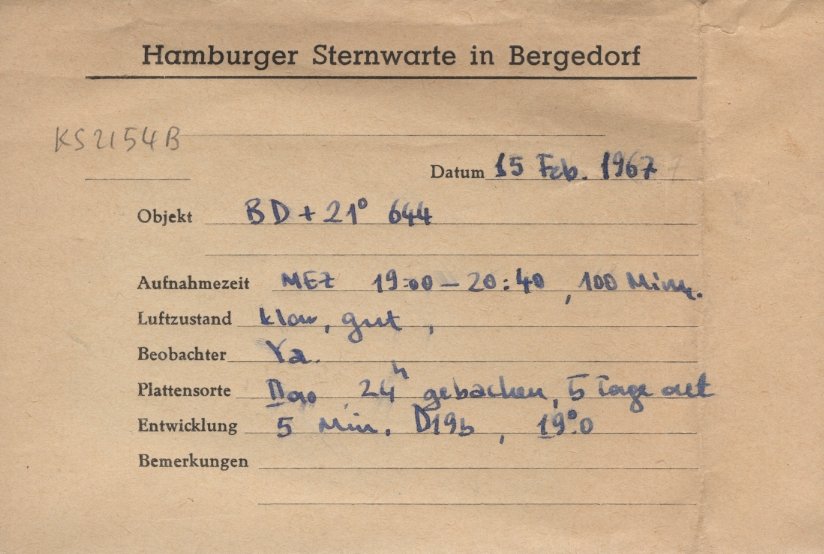 Hamburger Sternwarte in Bergedorf
KS2154B
Datum 15 Feb. 1967
Objekt BD + 21° 644
Aufnahmezeit MEZ 19:00 – 20:40, 100 Min.
Luftzustand klar, gut,
Beobachter Ya.
Plattensorte IIao, 24h gebacken, 5 Tage alt
Entwicklung 5 Min. D19b, 19°.0
Bemerkungen